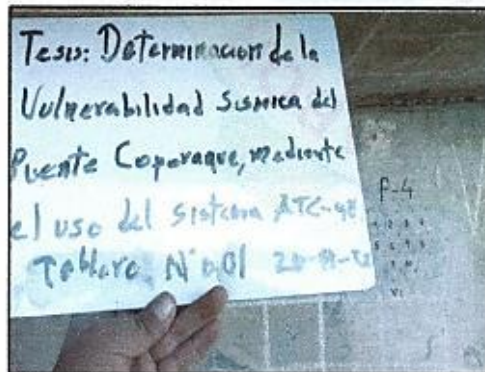 Tesis: Determinacion de la
Vulnerabilidad Sismica del
Puente Coporaque, mediante
el uso del sistema ATC-
Tablero N° 01
P-4